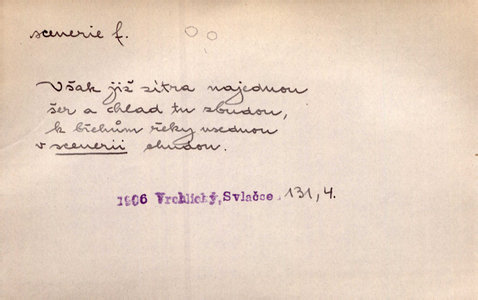 scenerie f.
Však již zítra najednou
šer a chlad tu zbudou,
k břehům řeky usednou
v scenerii chudou.
1906 Vrchlický, Svlačce. 131, 4.